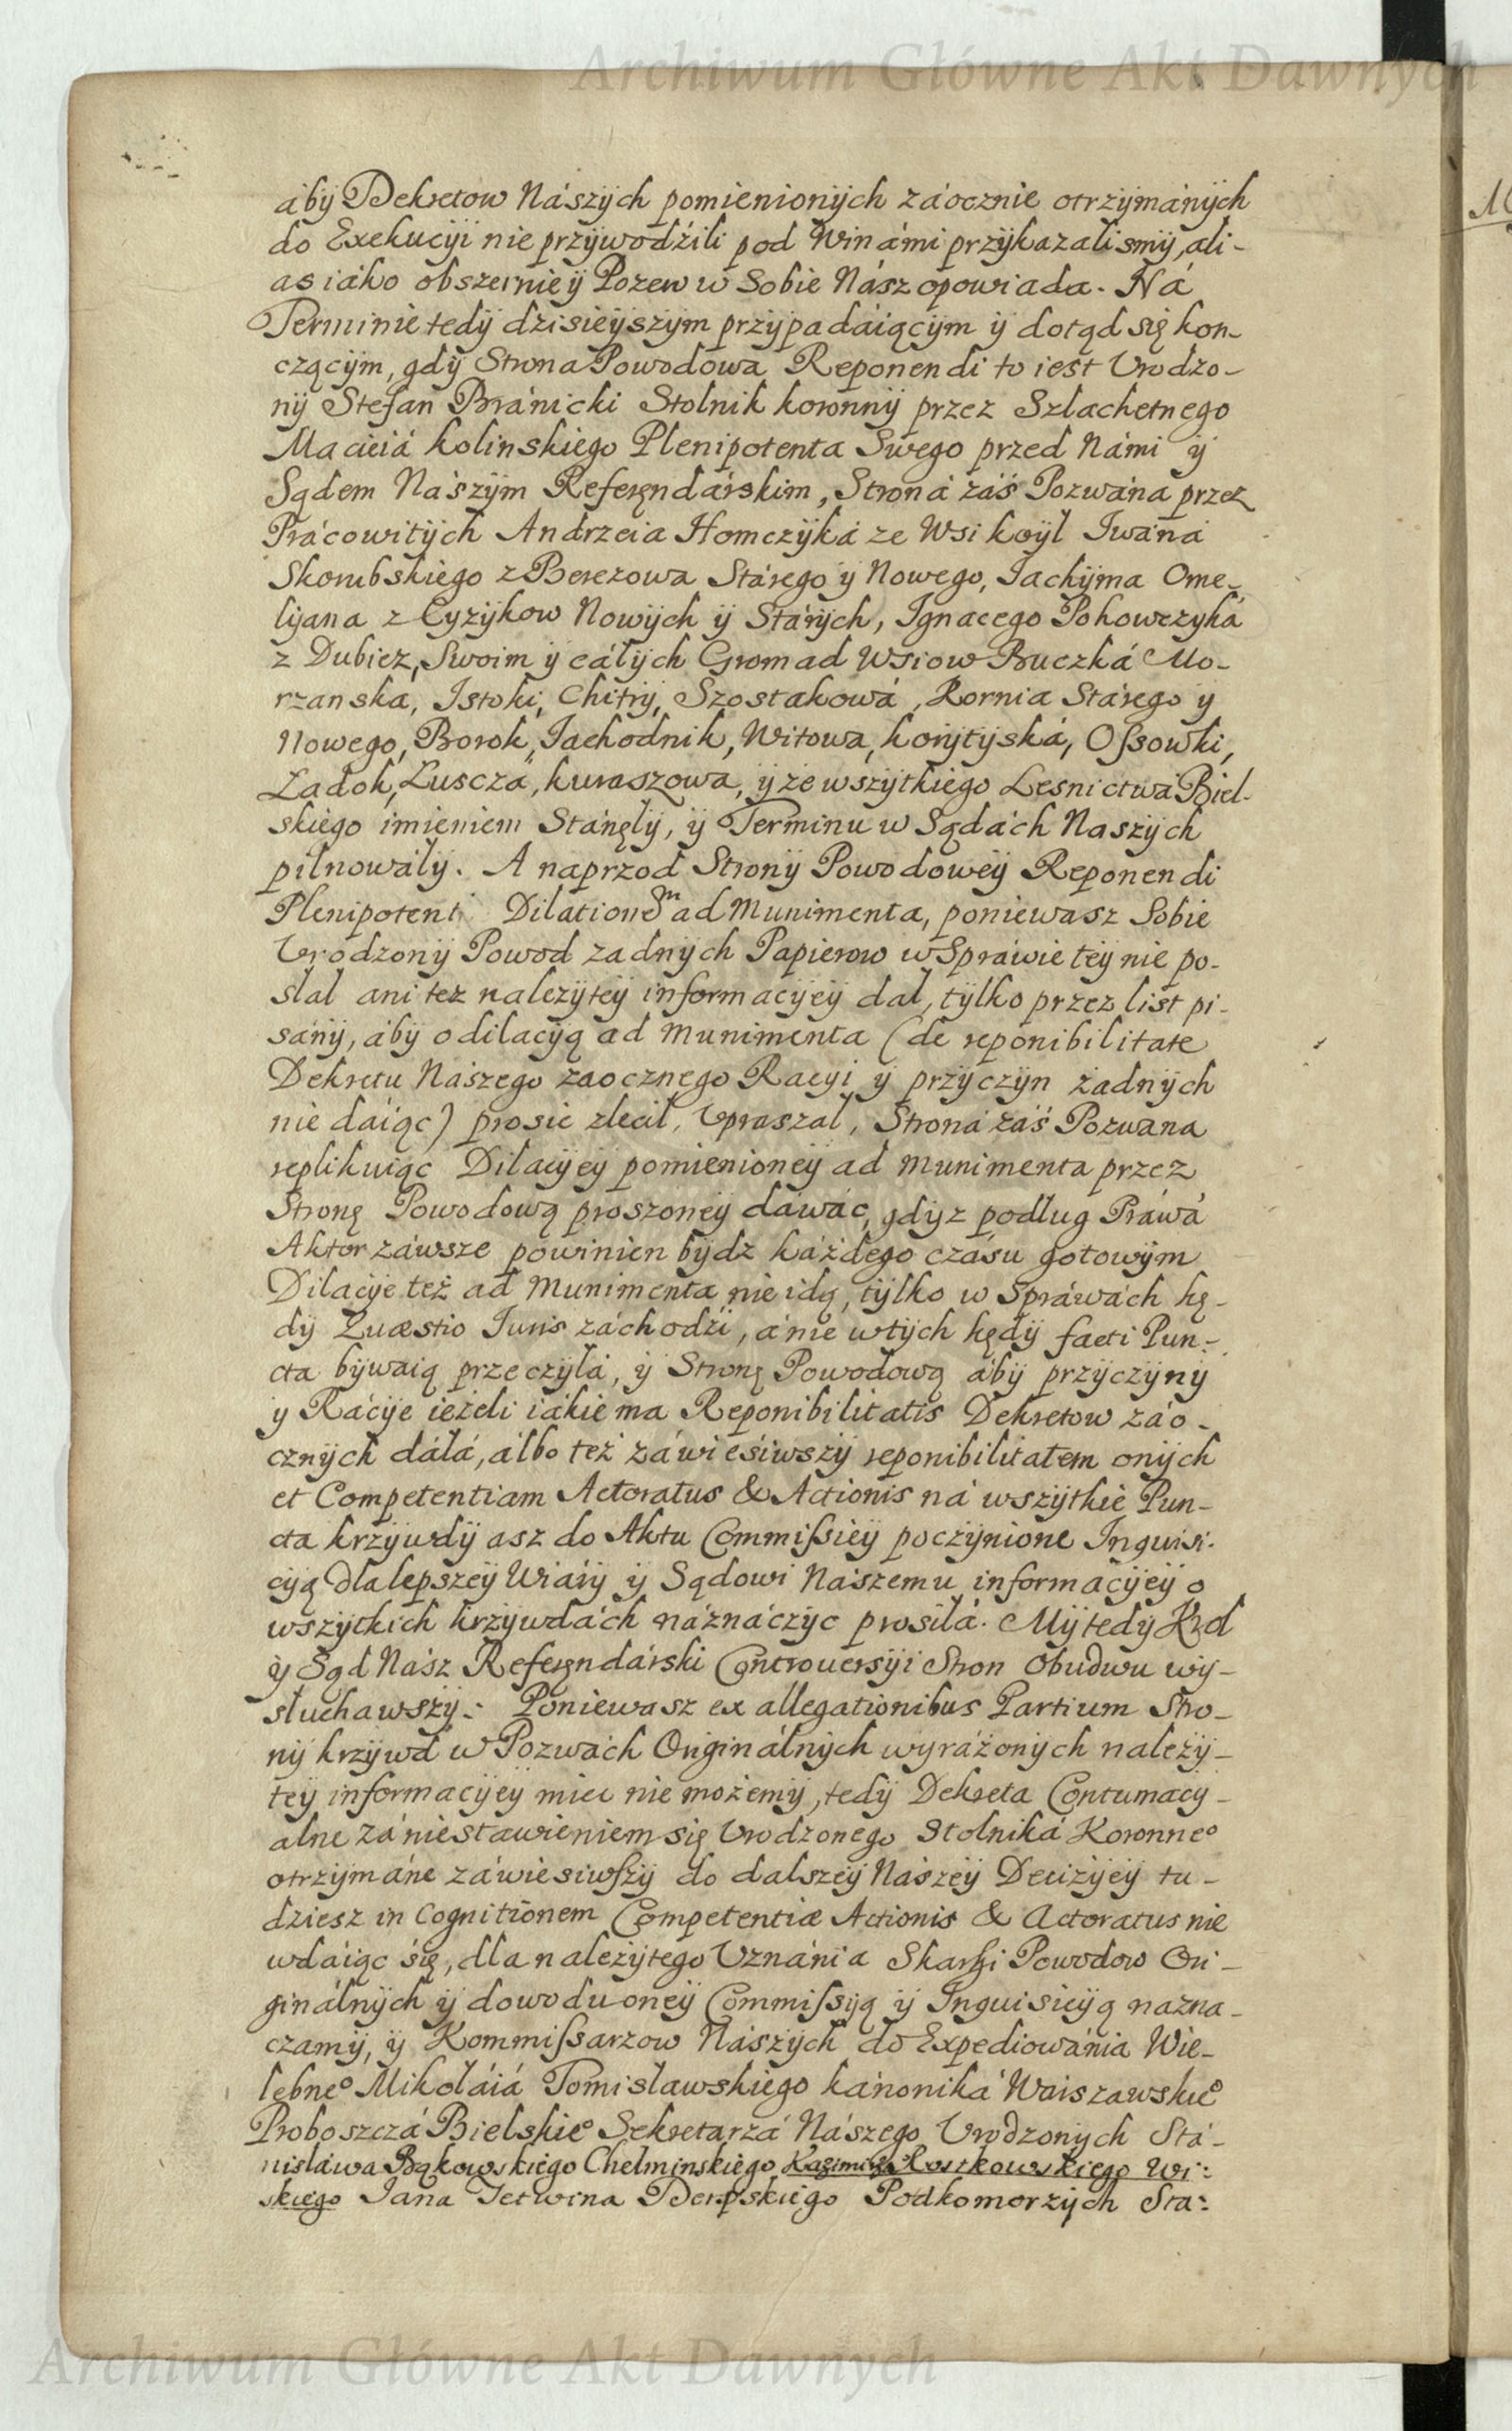 Archiwum Główne Akt Dawnych
áby Dekretow Nászych pomienionych záocznie otrzymánych
do Exekucyi nie przywodźili pod Winámi przykazalismy, ali-
as iáko obszerniey Pozew w Sobie Nász opowiada. Ná
Terminie tedy dzisieyszym przypadáiącym y dotąd się kon-
czącym, gdy Strona Powodowa Reponendi to iest Vrodzo-
ny Stefan Bránicki Stolnik koronny przez Szlachetnego
Macieiá kolinskiego Plenipotenta Swego przed Námi y
Sądem Nászym Referęndárskim, Stroná záś Pozwána przez
Prácowitych Andrzeia Homczyká ze Wsi koyl Iwáná
Skorubskiego z Berezowa Stárego y Nowego, Iachyma Ome-
lyana z Cyzykow Nowych y Stárych, Ignacego Pohowczyká
z Dubicz, Swoim y cáłych Gromad Wsiow Buczká Mo-
rzanska, Istoki, Chitry, Szostakowá, Kornia Stárego y
Nowego, Borok, Iachodnik, Witowa, korytyská, Ossowki,
Ladok, Luscza, kuraszowa, y ze wszytkiego Lesnictwá Biel-
skiego imieniem Stánęły, y Terminu w Sądách Naszych
pilnowáły. A naprzod Strony Powodowey Reponendi
Plenipotent Dilationem ad Munimenta, poniewasz Sobie
Vrodzony Powod zadnych Papierow w Spráwie tey nie po-
słal ani tez nalezytey informacyey dał, tylko przez list pi-
sány, áby o dilacyą ad Munimenta (de reponibilitate
Dekretu Nászego zaocznego Racyi y przyczyn żadnych
nie dáiąc) prosic zlecił, Vpraszał, Stroná záś Pozwana
replikuiąc Dilacyey pomienioney ad Munimenta przez
Stronę Powodową proszoney dáwác, gdyz podług Práwá
Aktor záwsze powinien bydz káżdego czásu gotowym
Dilacye też ad Munimenta nie idą, tylko w Spráwách kę-
dy Quæstio Iuris záchodźi, á nie w tych kędy facti Pun-
cta bywaią przeczyłá, y Stronę Powodową áby przyczyny
y Rácye ieżeli iákie ma Reponibilitatis Dekretow záo-
cznych dáłá, álbo też záwieśiwszy reponibilitatem onych
et Competentiam Actoratus & Actionis ná wszytkie Pun-
cta krzywdy asz do Aktu Commissiey poczynione Inquisi-
cyą dla lepszey Wiáry y Sądowi Nászemu informacyey o
wszytkich krzywdách náznáczyc prosiłá. My tedy Krol
y Sąd Nász Referęndárski Controuersyi Stron obudwu wy-
słuchawszy: Poniewasz ex allegationibus Partium Stro-
ny krzywd w Pozwách Originálnych wyráżonych należy-
tey informacyey miec nie możemy, tedy Dekreta Contumacy-
alne zá niestawieniem się Vrodzonego Stolniká Koronneo
otrzymáne záwiesiwszy do dalszey Nászey Decizyey tu-
dziesz in Cognitionem Competentiæ Actionis & Actoratus nie
wdáiąc się, dla należytego Vznánia Skargi Powodow Ori-
ginálnych y dowodu oney Commissyą y Inquisicyą nazna-
czamy, y Kommissarzow Nászych do Expediowánia Wie-
lebneo Mikołáiá Tomisławskiego kánoniká Warszawskieo
Proboszczá Bielskieo Sekretarzá Nászego Vrodzonych Stá-
nisláwa Bąkowskiego Chelminskiego Kazimirza Kostkowskiego Wi:
skiego Iana Ierwina Derpskiego Podkomorzych Sta:
Archiwum Główne Akt Dawnych